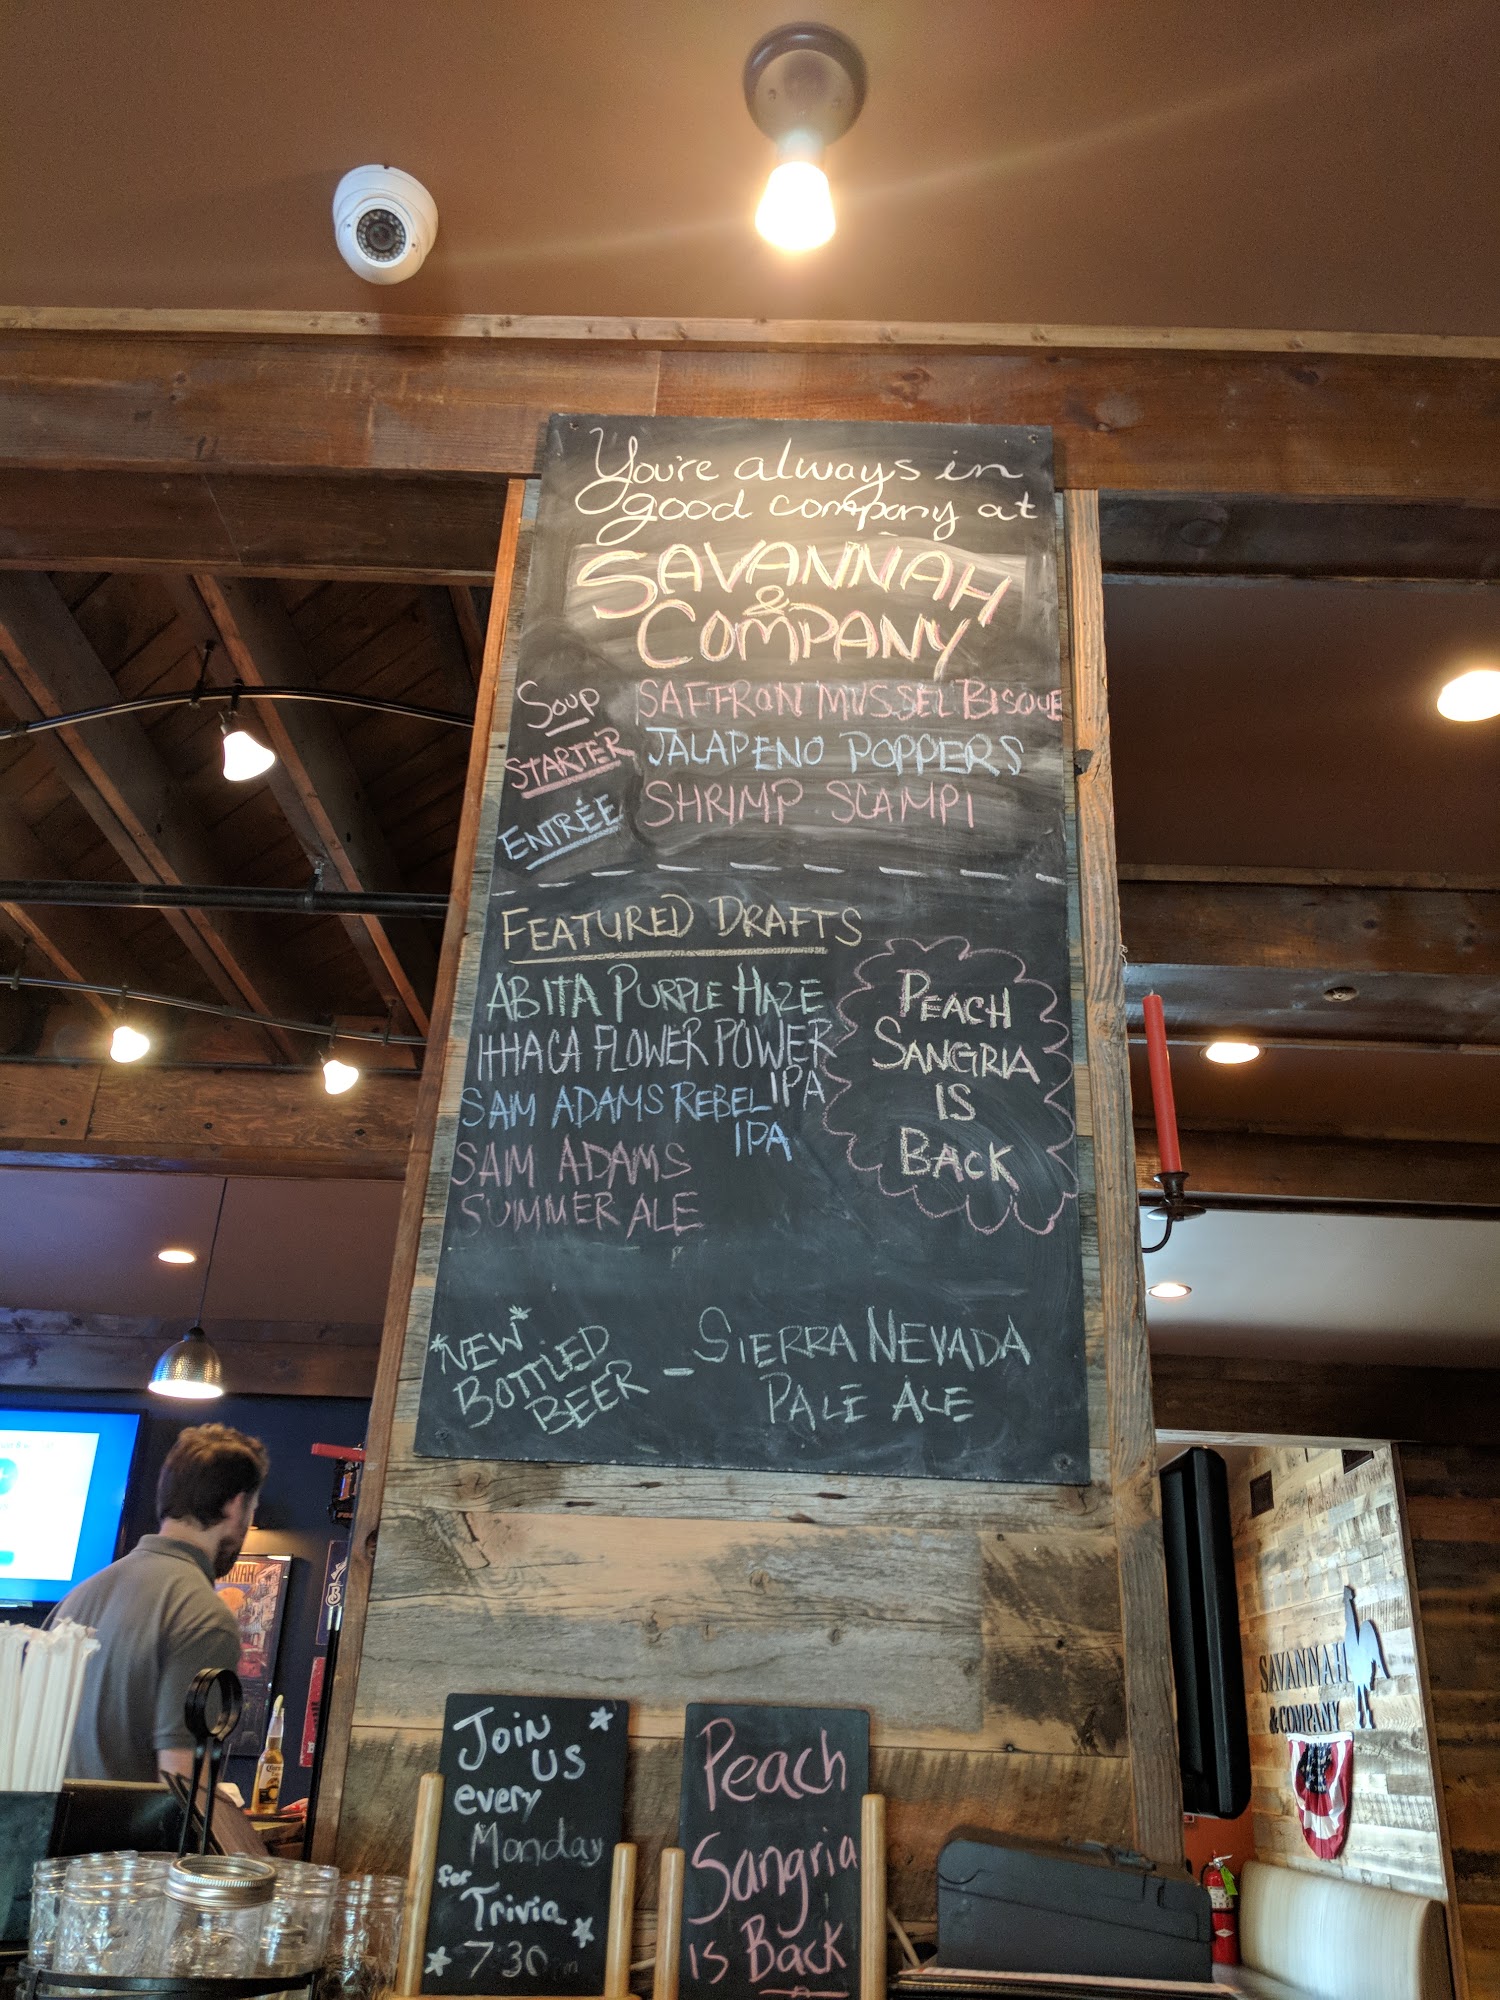 You're always in
good company at
SAVANNAH
&
COMPANY
SOUP SAFFRON MUSSEL BISQUE
STARTER JALAPENO POPPERS
ENTRÉE SHRIMP SCAMPI
FEATURED DRAFTS
ABITA PURPLE HAZE
ITHACA FLOWER POWER
IPA
SAM ADAMS REBEL
IPA
SAM ADAMS
SUMMER ALE
PEACH
SANGRIA
IS
BACK
*NEW*
BOTTLED
BEER -
SIERRA NEVADA
PALE ALE
Join
us
every
Monday
for
Trivia
7:30
Peach
Sangria
is Back
SAVANNAH
& COMPANY